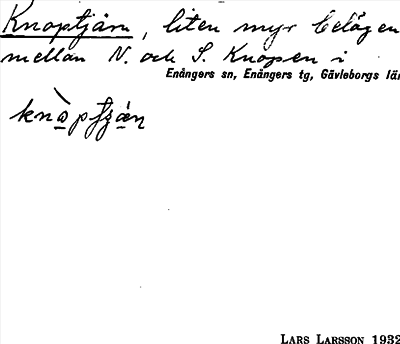 Knoptjärn, liten myr belägen
mellan N. och S. Knopen i
Enångers sn, Enångers tg, Gävleborgs lä
LARS LARSSON 1932